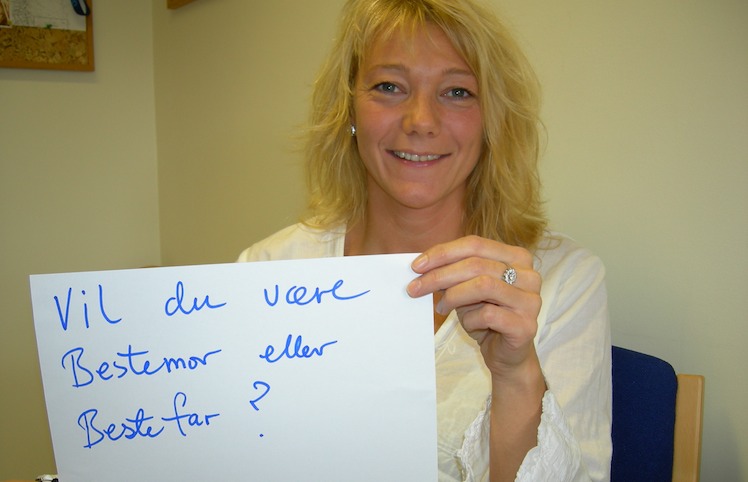 Vil du være
Bestemor eller
Bestefar ?